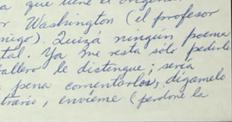 a que tiene el
r Washington (el profesor
migo). Quizá ningún poema
tal. Ya me resta sólo pedirle
allero le distingue; sería
pena comentarlos, dígamelo
trario, envíeme (perdone la